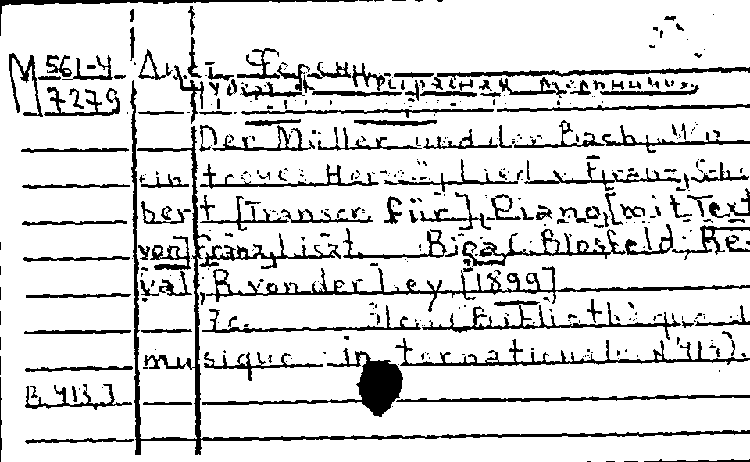 М 561-4 Лист Ференц
7279
Der Müller und der Bach „Wo
ein treues Herze“, Lied v. Franz Schu
bert [Transcr. für] Piano [mit Text
von] Franz Liszt. Riga L. Blosfeld; Re
val, R. von der Ley [1899]
7 c. (Bibliothèque d
musique internationale N 413).
B. 413.]